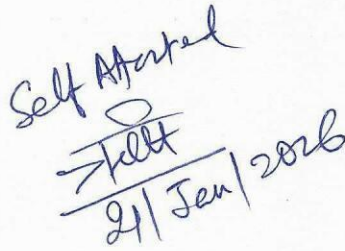 Self Attested
21/Jan/2026